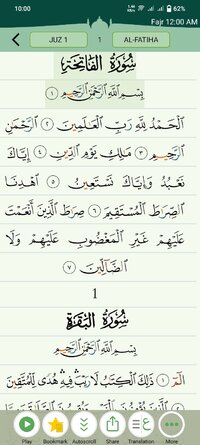 10:00
62%
Fajr 12:00 AM
JUZ 1
1
AL-FATIHA
سُورَةُ الفَاتِحَةِ
بِسْمِ اللَّهِ الرَّحْمَٰنِ الرَّحِيمِ ١
الْحَمْدُ لِلَّهِ رَبِّ الْعَٰلَمِينَ ٢ الرَّحْمَٰنِ
الرَّحِيمِ ٣ مَٰلِكِ يَوْمِ الدِّينِ ٤ إِيَّاكَ
نَعْبُدُ وَإِيَّاكَ نَسْتَعِينُ ٥ اهْدِنَا
الصِّرَٰطَ الْمُسْتَقِيمَ ٦ صِرَٰطَ الَّذِينَ أَنْعَمْتَ
عَلَيْهِمْ غَيْرِ الْمَغْضُوبِ عَلَيْهِمْ وَلَا
الضَّالِّينَ ٧
1
سُورَةُ البَقَرَةِ
بِسْمِ اللَّهِ الرَّحْمَٰنِ الرَّحِيمِ
الم ١ ذَٰلِكَ الْكِتَٰبُ لَا رَيْبَ فِيهِ هُدًى لِلْمُتَّقِينَ
Play
Bookmark
Autoscroll
Share
Translation
More